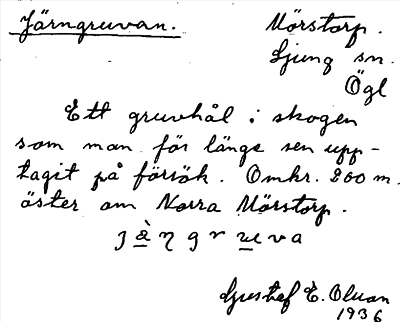 Järngruvan.
Mörstorp.
Ljung sn.
Ögl
Ett gruvhål i skogen
som man för länge sen upp-
tagit på försök. Omkr. 200 m.
öster om Norra Mörstorp.
Gustaf E. Olsson
1936